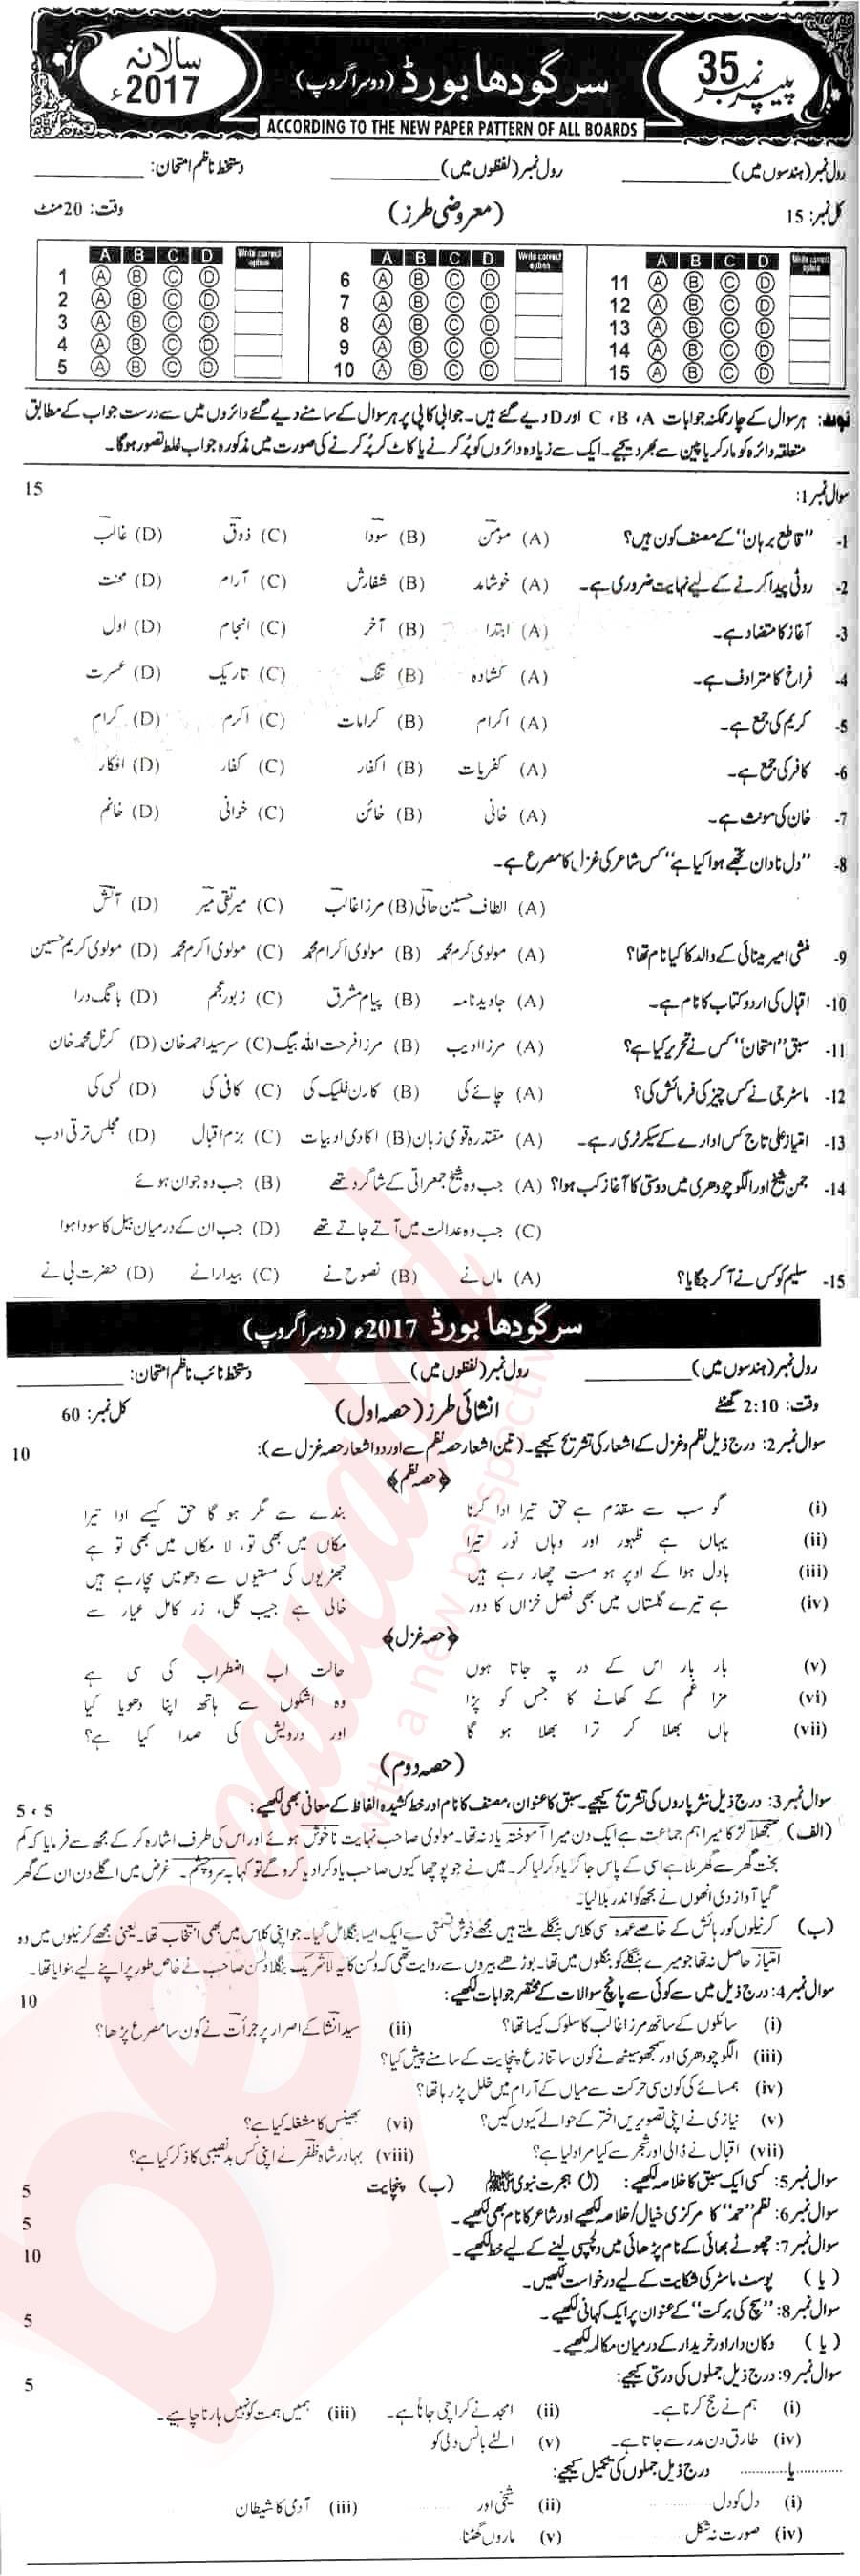 پیپر نمبر 35
سرگودھا بورڈ (دوسرا گروپ)
سالانہ 2017ء
ACCORDING TO THE NEW PAPER PATTERN OF ALL BOARDS
رول نمبر (ہندسوں میں) ____________ رول نمبر (لفظوں میں) ____________ دستخط ناظم امتحان: ____________
کل نمبر: 15 (معروضی طرز) وقت: 20 منٹ
A B C D Write correct option A B C D Write correct option A B C D Write correct option
1 A B C D 6 A B C D 11 A B C D
2 A B C D 7 A B C D 12 A B C D
3 A B C D 8 A B C D 13 A B C D
4 A B C D 9 A B C D 14 A B C D
5 A B C D 10 A B C D 15 A B C D
نوٹ: ہر سوال کے چار ممکنہ جوابات A، B، C اور D دیے گئے ہیں۔ جوابی کاپی پر ہر سوال کے سامنے دیے گئے دائروں میں سے درست جواب کے مطابق
متعلقہ دائرہ کو مارکر یا پین سے بھر دیجیے۔ ایک سے زیادہ دائروں کو پُر کرنے یا کاٹ کر پُر کرنے کی صورت میں مذکورہ جواب غلط تصور ہوگا۔
سوال نمبر 1: 15
1- "قاطع برہان" کے مصنف کون ہیں؟ (A) مومن (B) سودا (C) ذوق (D) غالب
2- روٹی پیدا کرنے کے لیے نہایت ضروری ہے۔ (A) خوشامد (B) شفارش (C) آرام (D) محنت
3- آغاز کا متضاد ہے۔ (A) ابتدا (B) آخر (C) انجام (D) اول
4- فراخ کا مترادف ہے۔ (A) کشادہ (B) تنگ (C) تاریک (D) عسرت
5- کریم کی جمع ہے۔ (A) اکرام (B) کرامات (C) اکرم (D) کرام
6- کافر کی جمع ہے۔ (A) کفریات (B) اکفار (C) کفار (D) افکار
7- خان کی مونث ہے۔ (A) خانی (B) خائن (C) خوانی (D) خانم
8- "دل ناداں تجھے ہوا کیا ہے" کس شاعر کی غزل کا مصرع ہے۔
(A) الطاف حسین حالی (B) مرزا غالب (C) میر تقی میر (D) آتش
9- منشی امیر مینائی کے والد کا کیا نام تھا؟ (A) مولوی کرم محمد (B) مولوی اکرام محمد (C) مولوی اکرم محمد (D) مولوی کریم حسین
10- اقبال کی اردو کتاب کا نام ہے۔ (A) جاوید نامہ (B) پیام مشرق (C) زبور عجم (D) بانگ درا
11- سبق "امتحان" کس نے تحریر کیا ہے؟ (A) مرزا ادیب (B) مرزا فرحت اللہ بیگ (C) سر سید احمد خان (D) کرنل محمد خان
12- ماسٹر جی نے کس چیز کی فرمائش کی؟ (A) چائے کی (B) کارن فلیک کی (C) کافی کی (D) لسی کی
13- امتیاز علی تاج کس ادارے کے سیکرٹری رہے۔ (A) مقتدرہ قومی زبان (B) اکادمی ادبیات (C) بزم اقبال (D) مجلس ترقی ادب
14- جمن شیخ اور الگو چودھری میں دوستی کا آغاز کب ہوا؟ (A) جب وہ شیخ جمعراتی کے شاگرد تھے (B) جب وہ جوان ہوئے
(C) جب وہ عدالت میں آتے جاتے تھے (D) جب ان کے درمیان بیل کا سودا ہوا
15- سلیم کو کس نے آ کر جگایا؟ (A) ماں نے (B) نصوح نے (C) بیدارا نے (D) حضرت بی نے
سرگودھا بورڈ 2017ء (دوسرا گروپ)
رول نمبر (ہندسوں میں) ____________ رول نمبر (لفظوں میں) ____________ دستخط نائب ناظم امتحان: ____________
وقت: 2:10 گھنٹے انشائی طرز (حصہ اول) کل نمبر: 60
سوال نمبر 2: درج ذیل نظم و غزل کے اشعار کی تشریح کیجیے۔ (تین اشعار حصہ نظم سے اور دو اشعار حصہ غزل سے): 10
﴿حصہ نظم﴾
(i) گو سب سے مقدم ہے حق تیرا ادا کرنا بندے سے مگر ہو گا حق کیسے ادا تیرا
(ii) یہاں ہے ظہور اور وہاں نور تیرا مکاں میں بھی تو، لا مکاں میں بھی تو ہے
(iii) بادل ہوا کے اوپر ہو مست چھا رہے ہیں جھڑیوں کی مستیوں سے دھومیں مچا رہے ہیں
(iv) ہے تیرے گلستاں میں بھی فصل خزاں کا دور خالی ہے جیب گل، زر کامل عیار سے
﴿حصہ غزل﴾
(v) بار بار اس کے در پہ جاتا ہوں حالت اب اضطراب کی سی ہے
(vi) مزا غم کے کھانے کا جس کو پڑا وہ اشکوں سے ہاتھ اپنا دھویا کیا
(vii) ہاں بھلا کر ترا بھلا ہو گا اور درویش کی صدا کیا ہے؟
(حصہ دوم)
سوال نمبر 3: درج ذیل نثر پاروں کی تشریح کیجیے۔ سبق کا عنوان، مصنف کا نام اور خط کشیدہ الفاظ کے معانی بھی لکھیے: 5 ، 5
(الف) منجھلا لڑکا میرا ہم جماعت ہے ایک دن میرا آموختہ یاد نہ تھا۔ مولوی صاحب نہایت ناخوش ہوئے اور اس کی طرف اشارہ کر کے مجھ سے فرمایا کہ کم
بخت گھر سے گھر ملا ہے اسی کے پاس جا کر یاد کر لیا کر۔ میں نے جو پوچھا کیوں صاحب یاد کرا دیا کرو گے تو کہا بہ سر و چشم۔ غرض میں اگلے دن ان کے گھر
گیا آواز دی انھوں نے مجھ کو اندر بلا لیا۔
(ب) کرنیلوں کو رہائش کے خاصے عمدہ سی کلاس بنگلے ملتے ہیں مجھے خوش قسمتی سے ایک ایسا بنگلا مل گیا۔ جو اپنی کلاس میں بھی انتخاب تھا۔ یعنی مجھے کرنیلوں میں وہ
امتیاز حاصل نہ تھا جو میرے بنگلے کو بنگلوں میں تھا۔ بوڑھے بیروں سے روایت تھی کہ ولسن کا یہ لاشریک بنگلا ولسن صاحب نے خاص طور پر اپنے لیے بنوایا تھا۔
سوال نمبر 4: درج ذیل میں سے کوئی سے پانچ سوالات کے مختصر جوابات لکھیے: 10
(i) سائلوں کے ساتھ مرزا غالب کا سلوک کیسا تھا؟ (ii) سید انشا کے اصرار پر جرأت نے کون سا مصرع پڑھا؟
(iii) الگو چودھری اور سمجھو سیٹھ نے کون سا تنازع پنچایت کے سامنے پیش کیا؟
(iv) ہمسائے کی کون سی حرکت سے میاں کے آرام میں خلل پڑ رہا تھا؟
(v) نیازی نے اپنی تصویریں اختر کے حوالے کیوں کیں؟ (vi) بھینس کا مشغلہ کیا ہے؟
(vii) اقبال نے ڈالی اور شجر سے کیا مراد لیا ہے؟ (viii) بہادر شاہ ظفر نے اپنی کس بدنصیبی کا ذکر کیا ہے؟
سوال نمبر 5: کسی ایک سبق کا خلاصہ لکھیے: (ا) ہجرت نبوی ﷺ (ب) پنچایت 5
سوال نمبر 6: نظم "حمد" کا مرکزی خیال/خلاصہ لکھیے اور شاعر کا نام بھی لکھیے۔ 5
سوال نمبر 7: چھوٹے بھائی کے نام پڑھائی میں دلچسپی لینے کے لیے خط لکھیے۔ 10
(یا) پوسٹ ماسٹر کی شکایت کے لیے درخواست لکھیں۔
سوال نمبر 8: "سچ کی برکت" کے عنوان پر ایک کہانی لکھیے۔ 5
(یا) دکان دار اور خریدار کے درمیان مکالمہ لکھیے۔
سوال نمبر 9: درج ذیل جملوں کی درستی کیجیے: 5
(i) ہم نے حج کرنا ہے۔ (ii) امجد نے کراچی جانا ہے۔ (iii) ہمیں ہمت کو نہیں ہارنا چاہیے۔
(iv) طارق دن مدرسے جاتا ہے۔ (v) الٹے بانس دلی کو
............یا............ درج ذیل جملوں کی تکمیل کیجیے:
(i) دل کو دل (ii) شیخی اور (iii) آدمی کا شیطان
(iv) صورت نہ شکل (v) ماروں گھٹنا
beeducated
with a new perspective